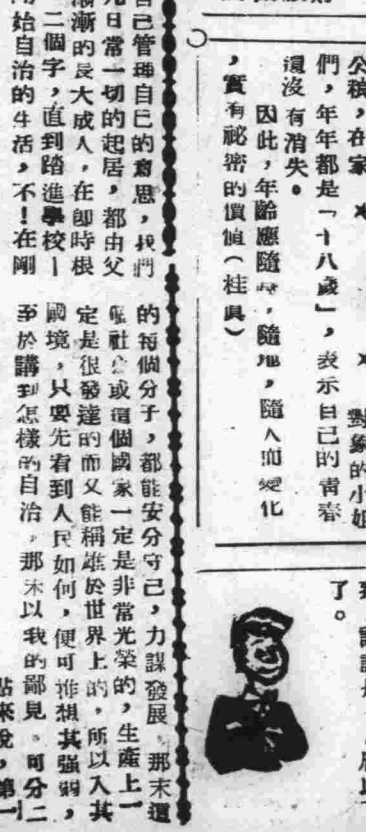 對象的小姐
們，年年都是「十八歲」，表示自己的青春
還沒有消失。
因此，年齡應隨時，隨地，隨人而變化
，實有祕密的價値（桂眞）
了。
自己管理自己的意思，我們
日常一切的起居，都由父
漸的長大成人，在卽時根
二個字，直到踏進學校—
始自治的生活，不！在剛
的每個分子，都能安分守己，力謀發展。那末這
個社會或這個國家一定是非常光榮的，生產上一
定是很發達的而又能稱雄於世界上的，所以入其
國境，只要先看到人民如何，便可推想其强弱，
至於講到怎樣的自治，那末以我的鄙見。可分二
點來說，第一